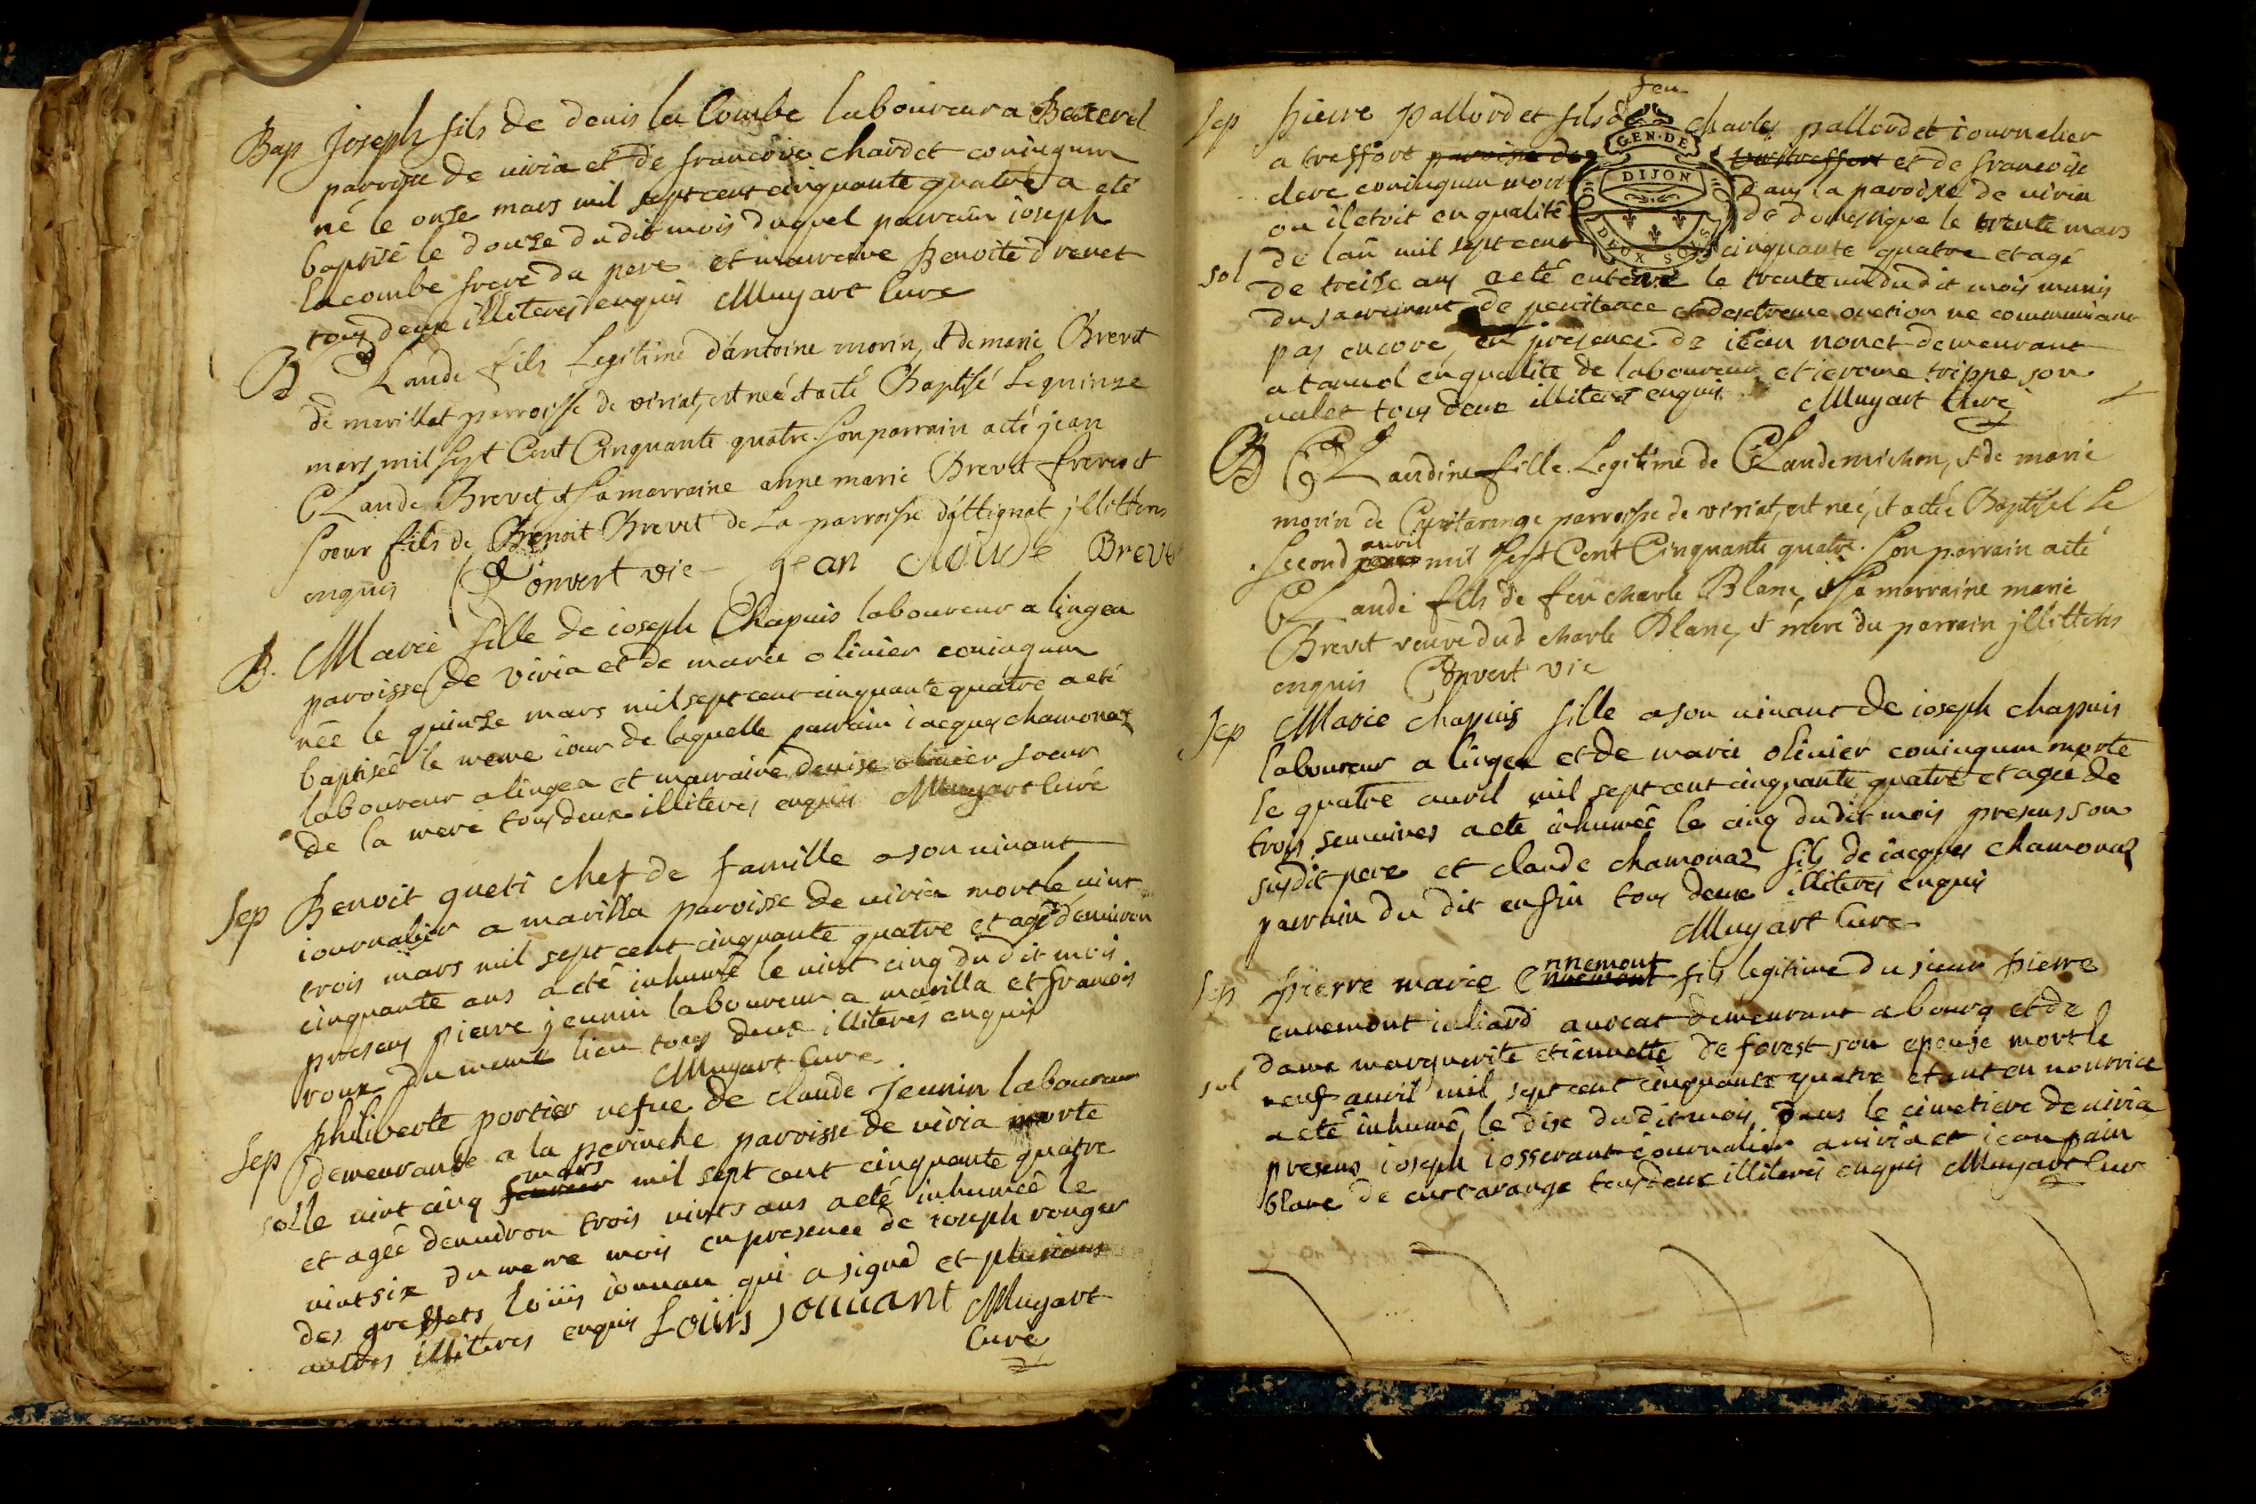 Bap Joseph fils de denis la Combe laboureur a Baterel
paroisse de viria et de francoise chardet coniugum
né le onse mars mil sept cent cinquante quatre a eté
baptisé le douse dudit mois duquel parrain ioseph
lacombe frere du pere et marraine Benoite drevet
tous deux illiteres enquis Muyart Curé
B Claude fils Legitime d'antoine morin, et de marie Brevet
de marillat parroisse de viriat, est né et a eté Baptisé Le quinse
mars mil sept Cent Cinquante quatre. son parrain a eté jean
CLaude Brevet, et sa marraine anne marie Brevet frere et
soeur fils de Benoit Brevet de La parroisse d'attignat jllitteres
enquis Convert vic jean claude Brevet
B. Marie fille de ioseph Chapuis laboureur a lingea
paroisse de viria et de marie oliuier coniugum
née le quinse mars mil sept cent cinquante quatre a eté
baptisée le meme iour de laquelle parrain iacques chamonaz
laboureur a lingea et marraine denise oliuier soeur
de la mere tous deux illiteres enquis Muyart Curé
sep Benoit gueti chef de famille a son uiuant
iournalier a marilla paroisse de uiria mort le uint
trois mars mil sept cent cinquante quatre et agé denuiron
cinquante ans a eté inhumé le uint cinq du dit mois
presens pierre jeunin laboureur a marilla et francois
roux du meme lieu tous deux illiteres enquis
Muyart Cure
sep philiberte portier uefue de claude jeunin laboureur
demeurante a la perinche paroisse de viria morte
mars
sol le uint cinq feurier mil sept cent cinquante quatre
et agée denuiron trois uints ans a eté inhumée le
uint six du meme mois en presence de ioseph ronger
des greffets loüis iouuan qui a signé et plusieurs
aultres illiteres enquis Loüis jouuant Muyart
Curé
feu
sep pierre pallordet fils de charles pallordet iournalier
a treffort paroisse de et de francoise
clere coniugum mort dans la paroisse de uiria
ou il etoit en qualité de domestique le trente mars
de lan mil sept cent cinquante quatre et agé
GEN·DE
DIJON
DEUX SOLS
sol de treise ans a eté enterré le trente un du dit mois munis
du sacrement de penitence et dextreme onction ne communiant
pas encore en presence de iean nonet demeurant
a tanuol en qualite de laboureur et ierome trippe son
ualet tous deux illiteres enquis Muyart Curé
B CLaudine fille Legitime de CLaude michon, et de marie
morin de Curtarange parroisse de viriat, est neé, et a eté Baptiseé Le
auril
second mars mil sept Cent Cinquante quatre. son parrain a eté
CLaude fils de feu charle Blanc, et sa marraine marie
Brevet veuve dud charle Blanc, et mere du parrain jllitteres
enquis Convert vic
sep Marie chapuis fille a son uiuant de ioseph chapuis
laboureur a lingea et de marie oliuier coniugum morte
le quatre auril mil sept cent cinquante quatre et agée de
trois semaines a eté inhumée le cinq dudit mois presens son
susdit pere et claude chamonaz fils de iacques chamonaz
parrain du dit enfin tous deux illiteres enquis
Muyart Cure
nnemont
sep pierre marie Ennemont fils legitime du sieur pierre
ennemont iuliard auocat demeurant a bourg et de
dame marguerite etiennette de forest son epouse mort le
sol neuf auril mil sept cent cinquante quatre etant en nourrice
a eté inhumé le dix dudit mois dans le cimetiere de uiria
presens ioseph iosserant iournalier a uiria et iean pain
blanc de curtarange tous deux illiteres enquis Muyart Cur